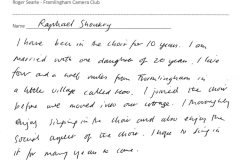 Roger Searle - Framlingham Camera Club
Name Raphael
I have been in the choir for 10 years. I am
married with one daughter of 20 years. I live
four and a half miles from Framlingham in
a little village called. I joined the choir
before we moved into our cottage. I thoroughly
enjoy singing in the choir and also enjoy the
social aspect of the choir. I hope to sing in
it for many years to come.